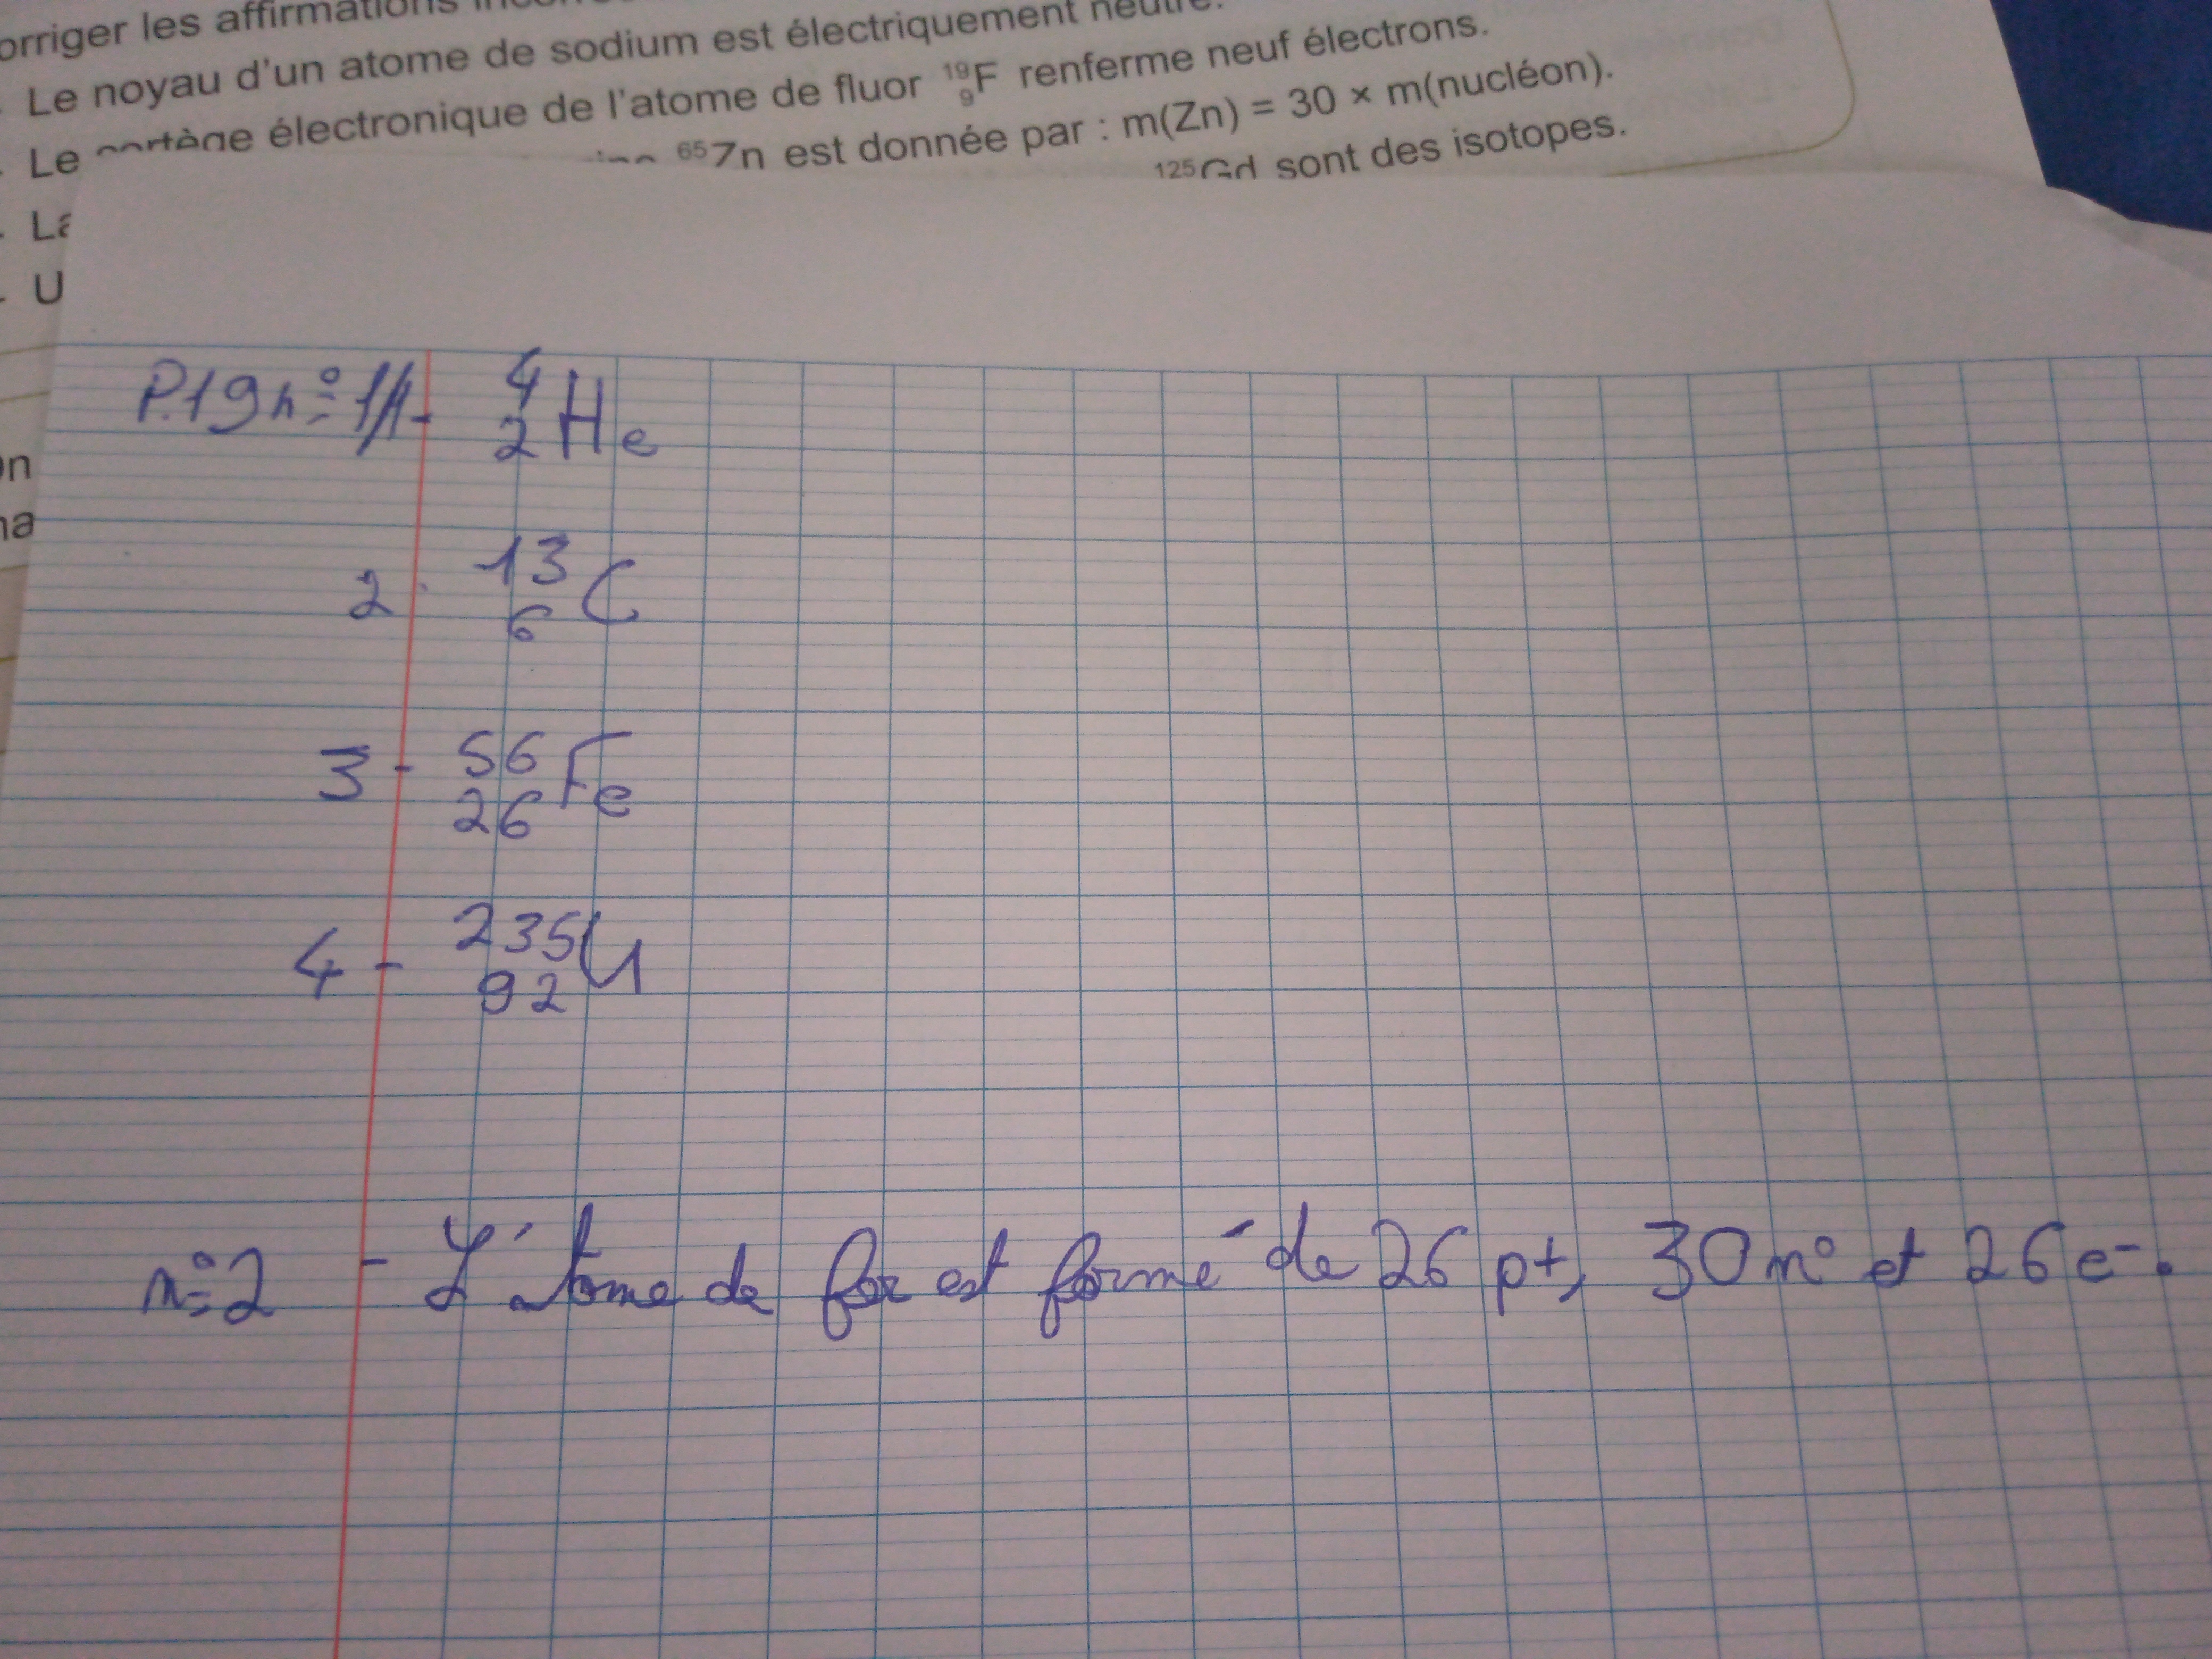 orriger les affirmations
Le noyau d'un atome de sodium est électriquement neutre.
Le cortège électronique de l'atome de fluor ¹⁹₉F renferme neuf électrons.
⁶⁵Zn est donnée par : m(Zn) = 30 × m(nucléon).
La
¹²⁵Gd sont des isotopes.
U
on
na
P.19 n° 1/1- ⁴₂He
2. ¹³₆C
3 - ⁵⁶₂₆Fe
4 - ²³⁵₉₂U
n°2 - L'atome de fer est formé de 26 p+, 30 n° et 26 e-.